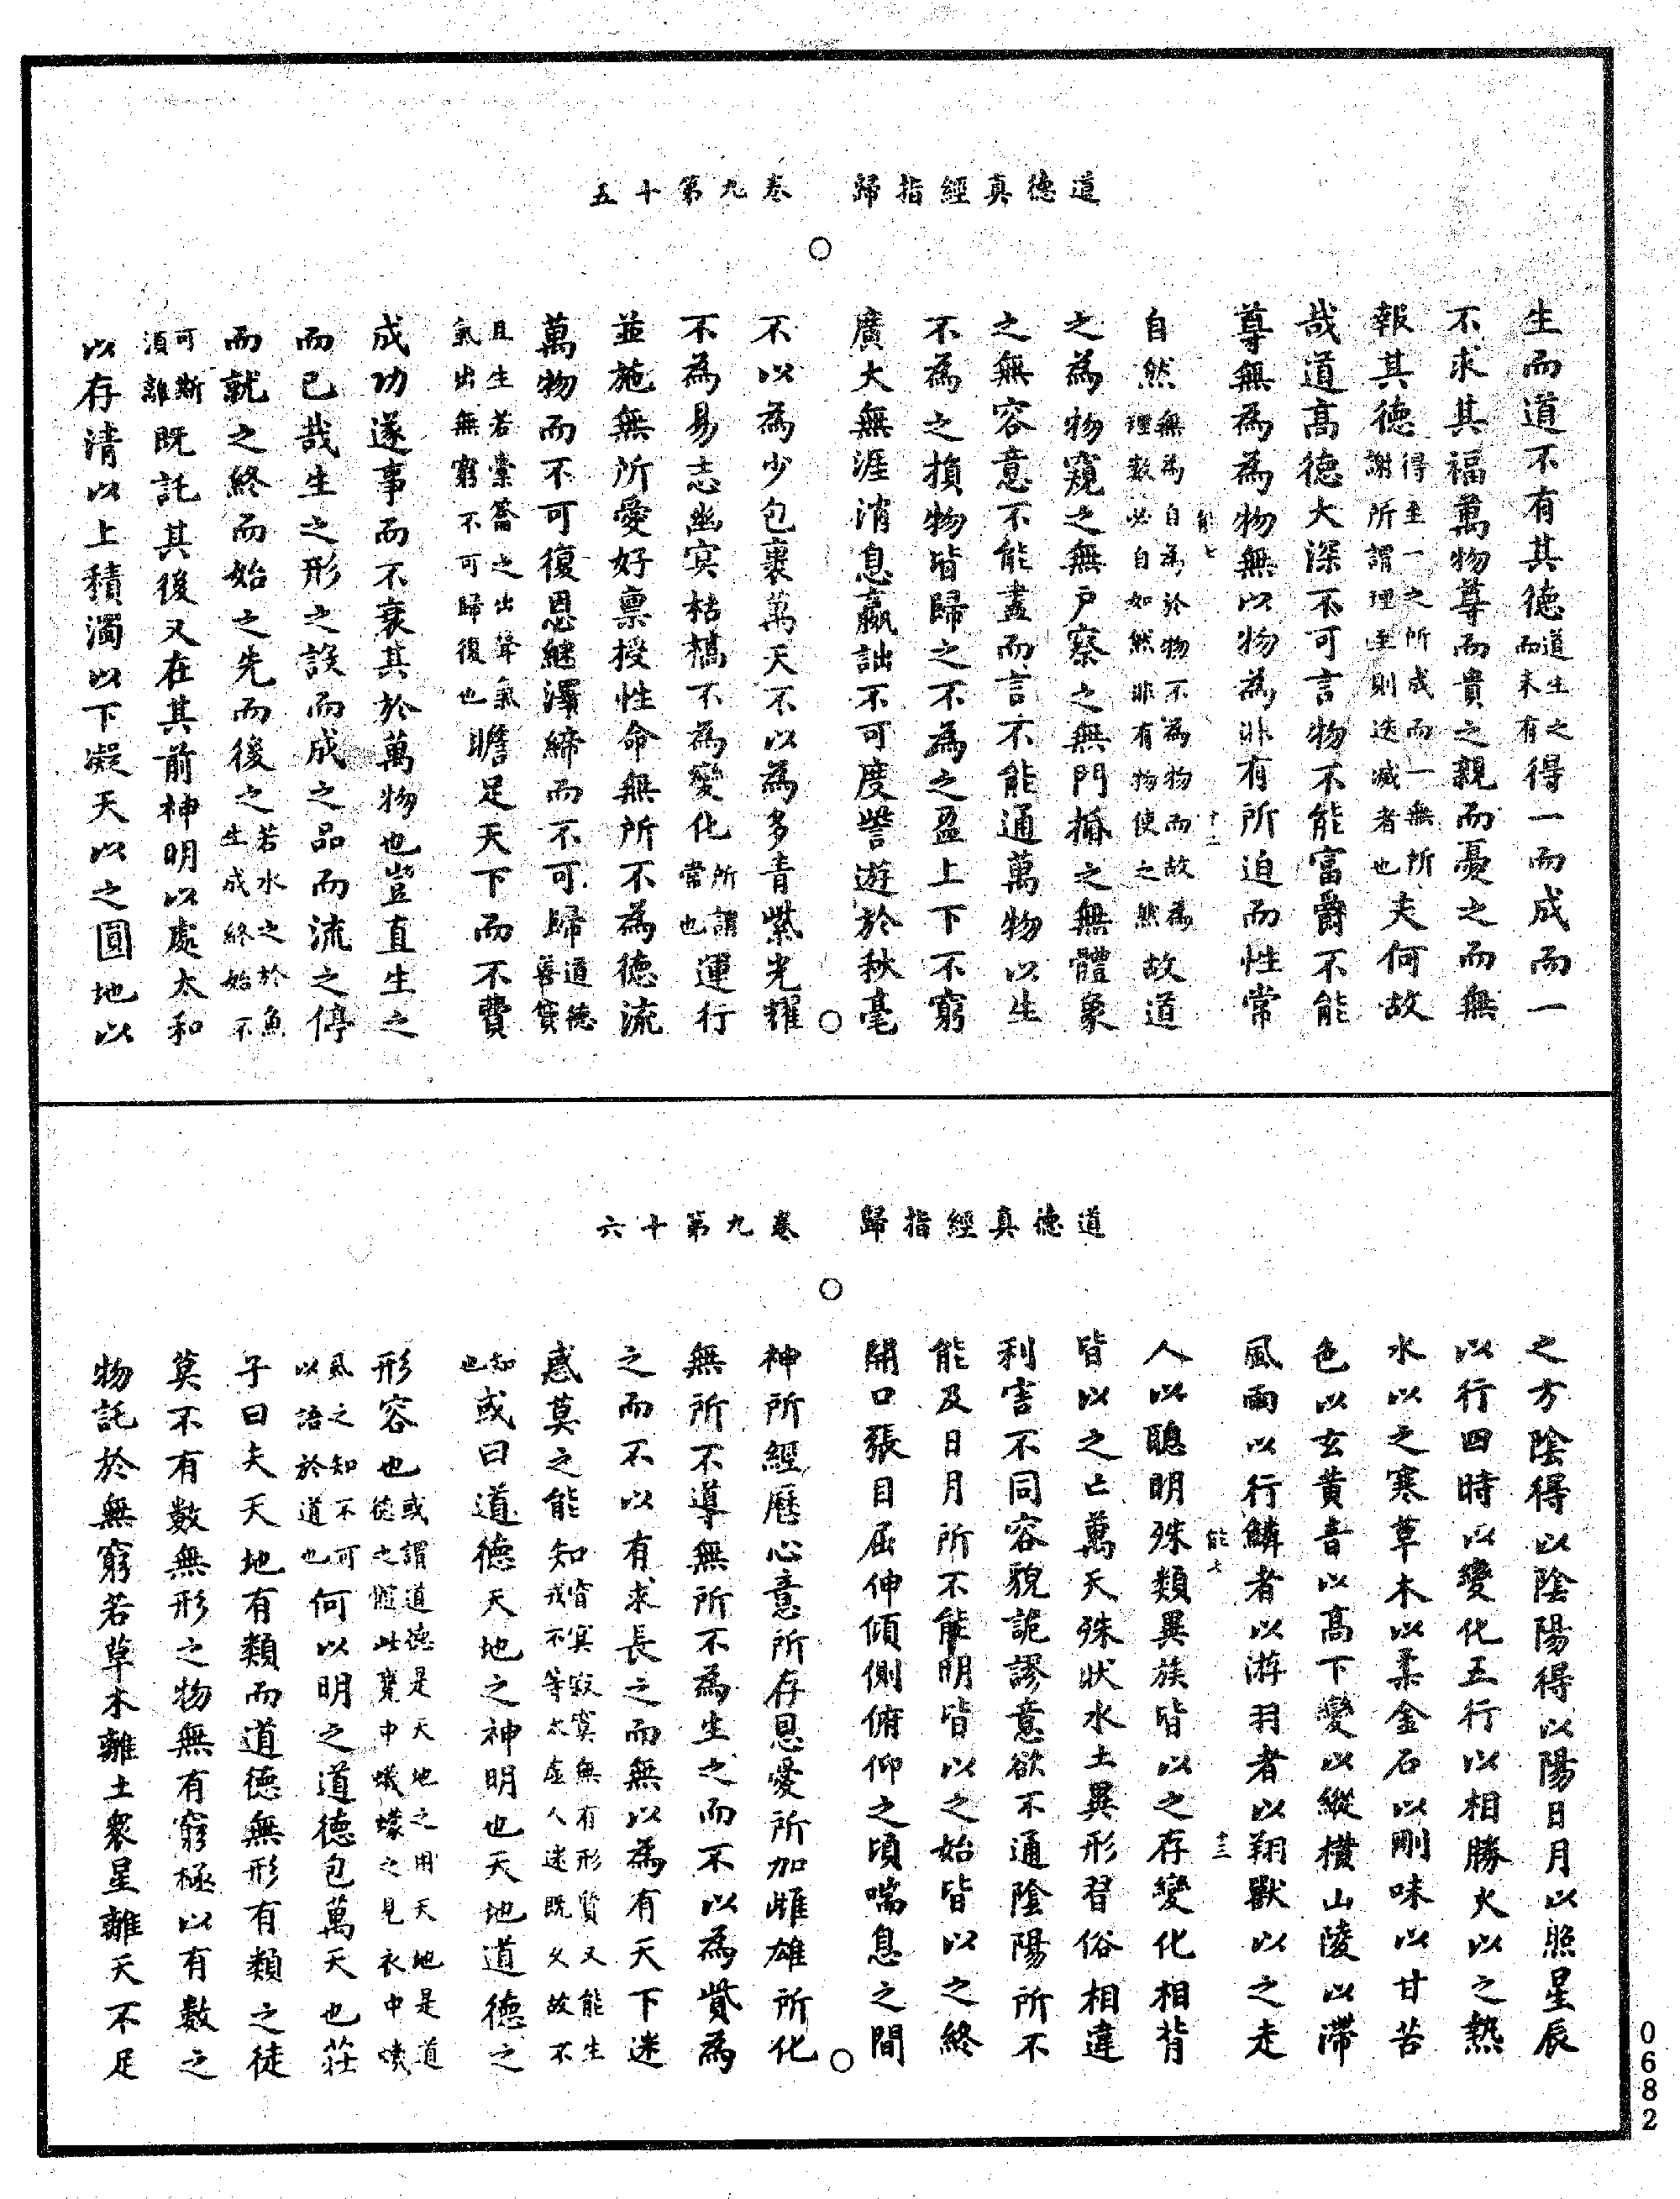 道德真經指歸　卷九第十五
生而道不有其德道生之而未有得一而成而一
不求其福萬物尊而貴之親而憂之而無
報其德得至一之所成而一無所謝所謂理至則迭減者也夫何故
哉道高德大深不可言物不能富爵不能
尊無為為物無以物為非有所迫而性常
能七　十二
自然無為自為於物不為物而故為理數必自如然非有物使之然故道
之為物窺之無戶察之無門揗之無體象
之無容意不能盡而言不能通萬物以生
不為之損物皆歸之不為之盈上下不窮
廣大無涯消息嬴詘不可度訾遊於秋毫
不以為少包裹萬天不以為多青紫光耀
不為易志幽冥枯槁不為變化所謂常也運行
並施無所愛好稟授性命無所不為德流
萬物而不可復恩繼澤締而不可歸道德善貸
且生若橐籥之出聲氣氣出無窮不可歸復也贍足天下而不費
成功遂事而不衰其於萬物也豈直生之
而已哉生之形之設而成之品而流之停
而就之終而始之先而後之若水之於魚生成終始不
可斯須離既託其後又在其前神明以處太和
以存清以上積濁以下凝天以之圓地以
道德真經指歸　卷九第十六
之方陰得以陰陽得以陽日月以照星辰
以行四時以變化五行以相勝火以之熱
水以之寒草木以柔金石以剛味以甘苦
色以玄黃音以高下變以縱橫山陵以滯
風雨以行鱗者以游羽者以翔獸以之走
能七　十三
人以聰明殊類異族皆以之存變化相背
皆以之亡萬天殊狀水土異形習俗相違
利害不同容貌詭謬意欲不通陰陽所不
能及日月所不能明皆以之始皆以之終
開口張目屈伸傾側俯仰之頃喘息之間
神所經歷心意所存恩愛所加雌雄所化
無所不導無所不為生之而不以為貲為
之而不以有求長之而無以為有天下迷
惑莫之能知皆冥寂寞無有形質又能生我不等太虛人迷既久故不
知也或曰道德天地之神明也天地道德之
形容也或謂道德是天地之用天地是道德之體此甕中蠛蠓之見衣中蟣
風之知不可以語於道也何以明之道德包萬天也莊
子曰夫天地有類而道德無形有類之徒
莫不有數無形之物無有窮極以有數之
物託於無窮若草木離土衆星離天不足
0682